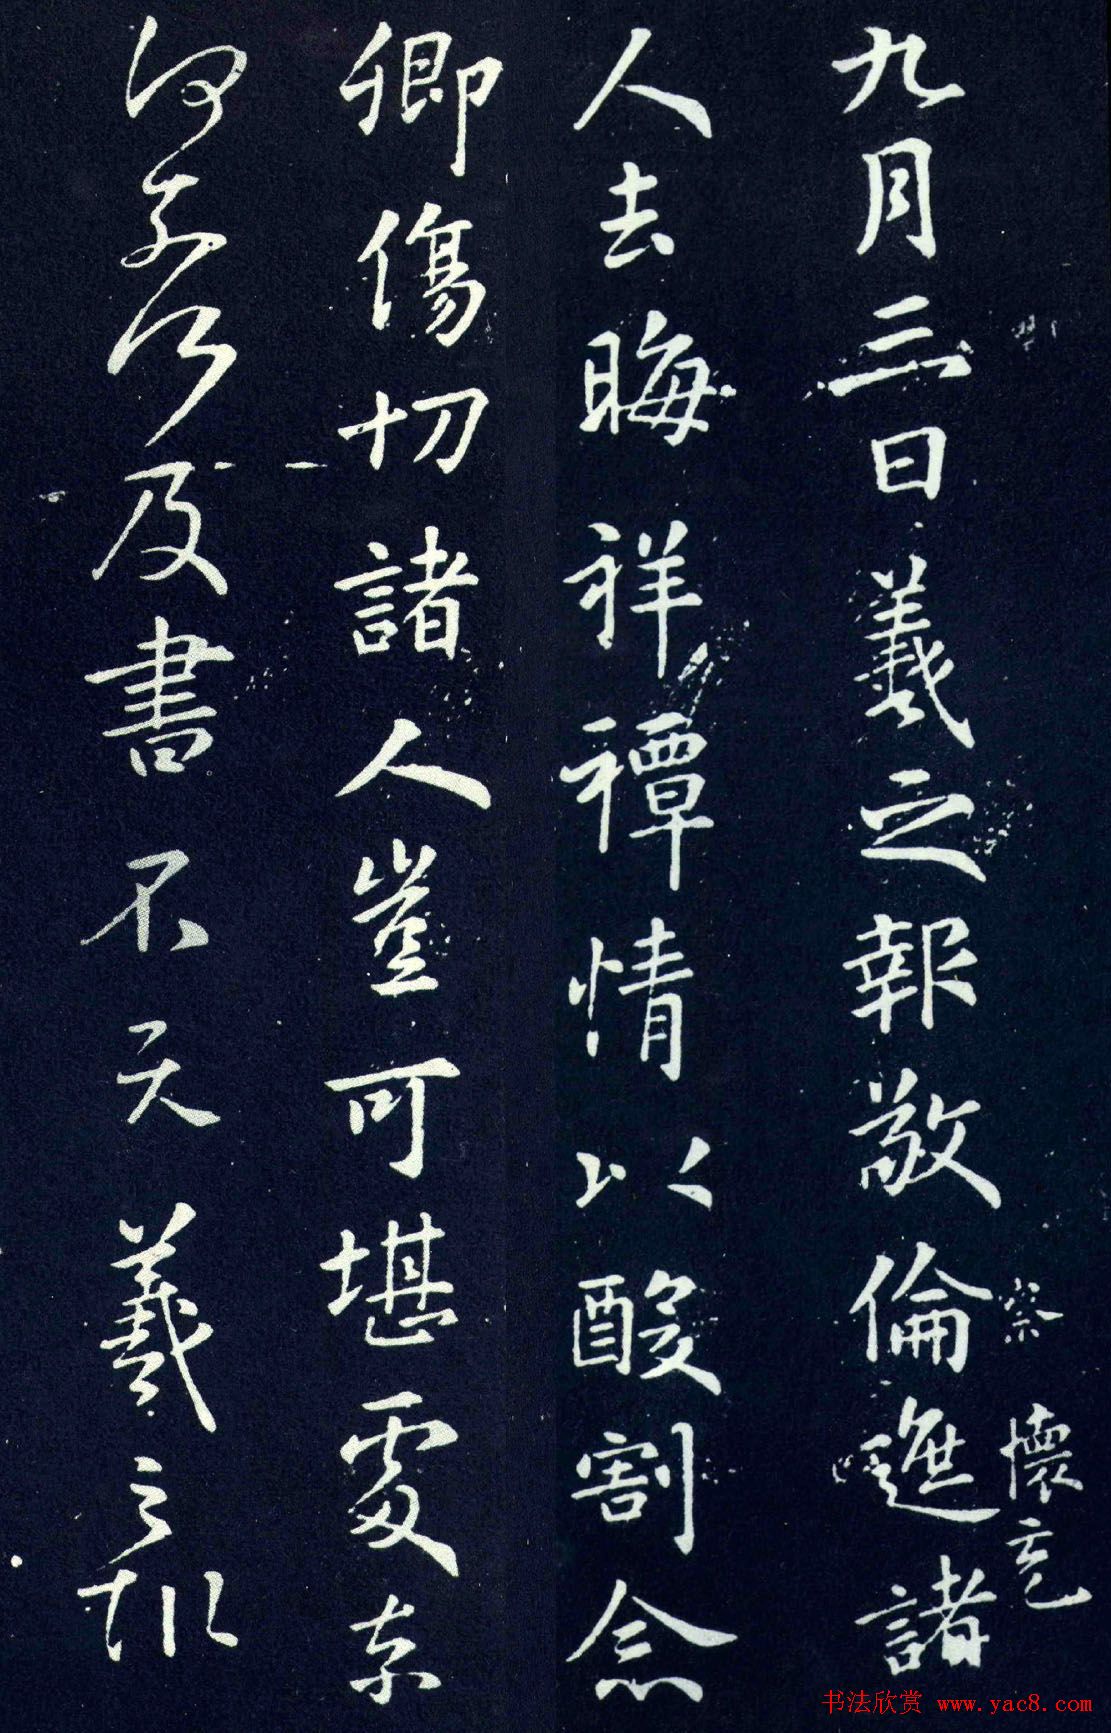 察 懷充
九月三日羲之報敬倫遮諸
人去晦祥禫情以酸割念
卿傷切諸人豈可堪處奈
何奈何及書不 羲之報
书法欣赏 www.yac8.com